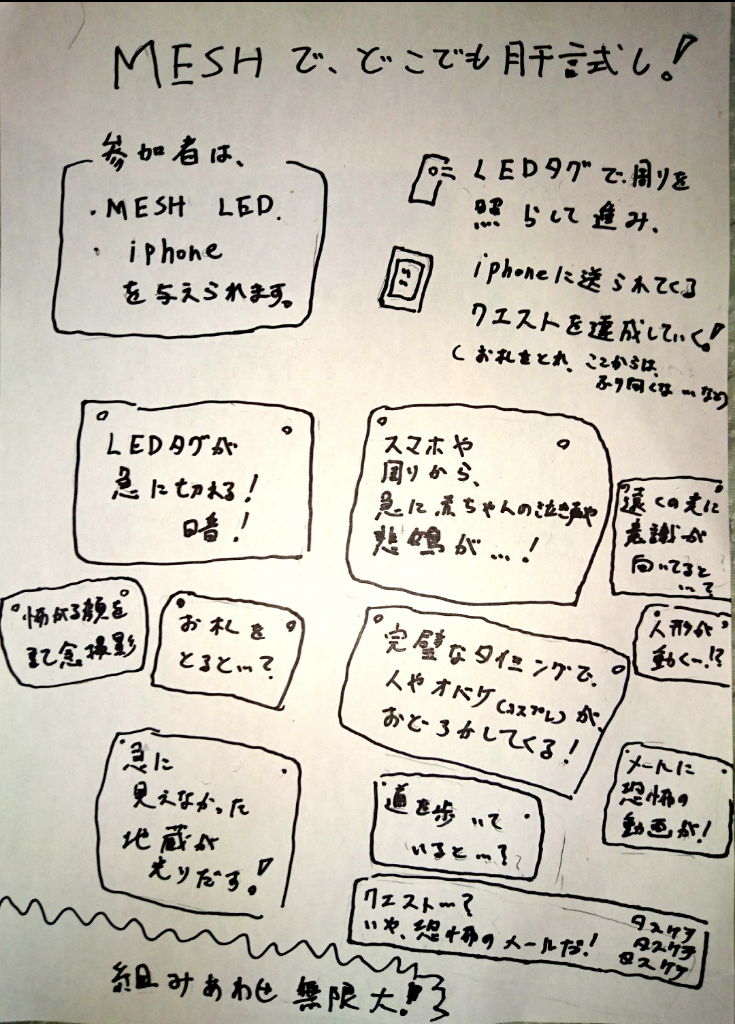 MESHで、どこでも肝試し!
参加者は、
・MESH LED.
・iphone
を与えられます。
LEDタグで周りを
照らして進み、
iphoneに送られてくる
クエストを達成していく!
(お札をとれ、ここからは、
ふり向くな…など)
LEDタグが
急に切れる!
暗!
スマホや
周りから、
急に赤ちゃんの泣き声や
悲鳴が…!
遠くの先に
意識が
向いてると
…?
怖がる顔を
記念撮影
お札を
とると…?
完璧なタイミングで、
人やオバケ(コスプレ)が、
おどろかしてくる!
人形が
動く…!?
急に
見えなかった
地蔵が
光りだす!
道を歩いて
いると…?
メールに
恐怖の
動画が!
クエスト…?
いや、恐怖のメールだ!
タスケテ
タスケテ
タスケテ
組みあわせ無限大!!